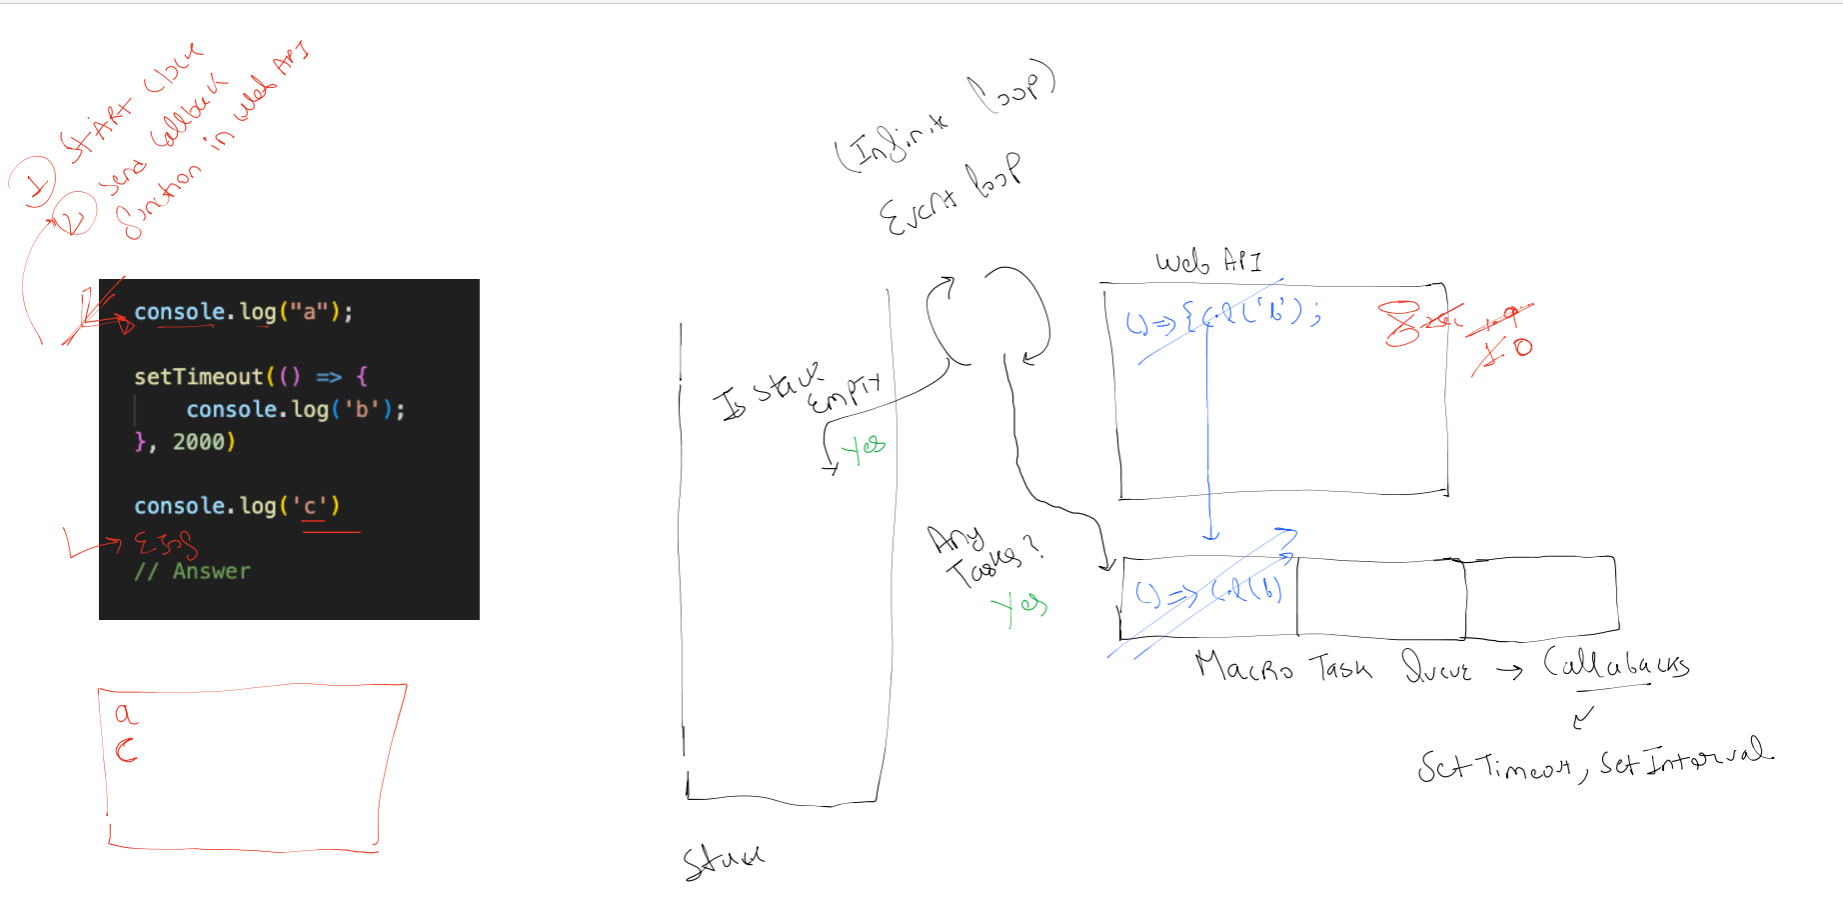 1 START Clock
2 Send Callback
function in Web API
console.log("a");
setTimeout(() => {
console.log('b');
}, 2000)
console.log('c')
// Answer
a
c
(Infinite loop)
Event loop
Is Stack
EMPTY
Yes
Stack
Any
Tasks?
Yes
Web API
() => { c.l('b');
2sec
1.9
1 0
() => c.l(b)
MACRO TASK Queue → Callabacks
SetTimeout, SetInterval